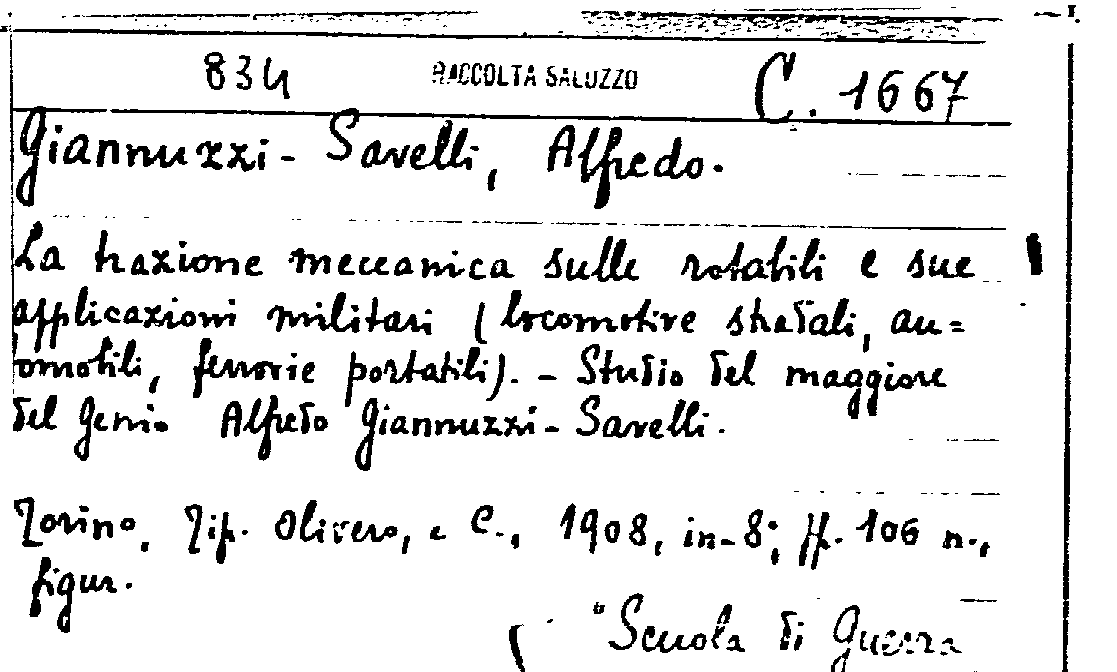 834 RACCOLTA SALUZZO C. 1667
Giannuzzi-Savelli, Alfredo.
La trazione meccanica sulle rotabili e sue
applicazioni militari (locomotive stradali, au=
tomobili, ferrovie portatili). - Studio del maggiore
del Genio Alfredo Giannuzzi-Savelli.
Torino, Tip. Olivero, e C., 1908, in-8°, ff. 106 n.,
figur.
"Scuola di Guerra